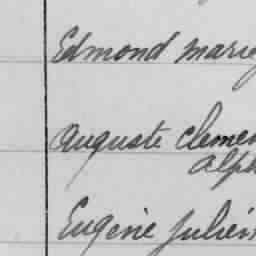 Edmond marie
Auguste Clemen
Alph
Eugénie Julien